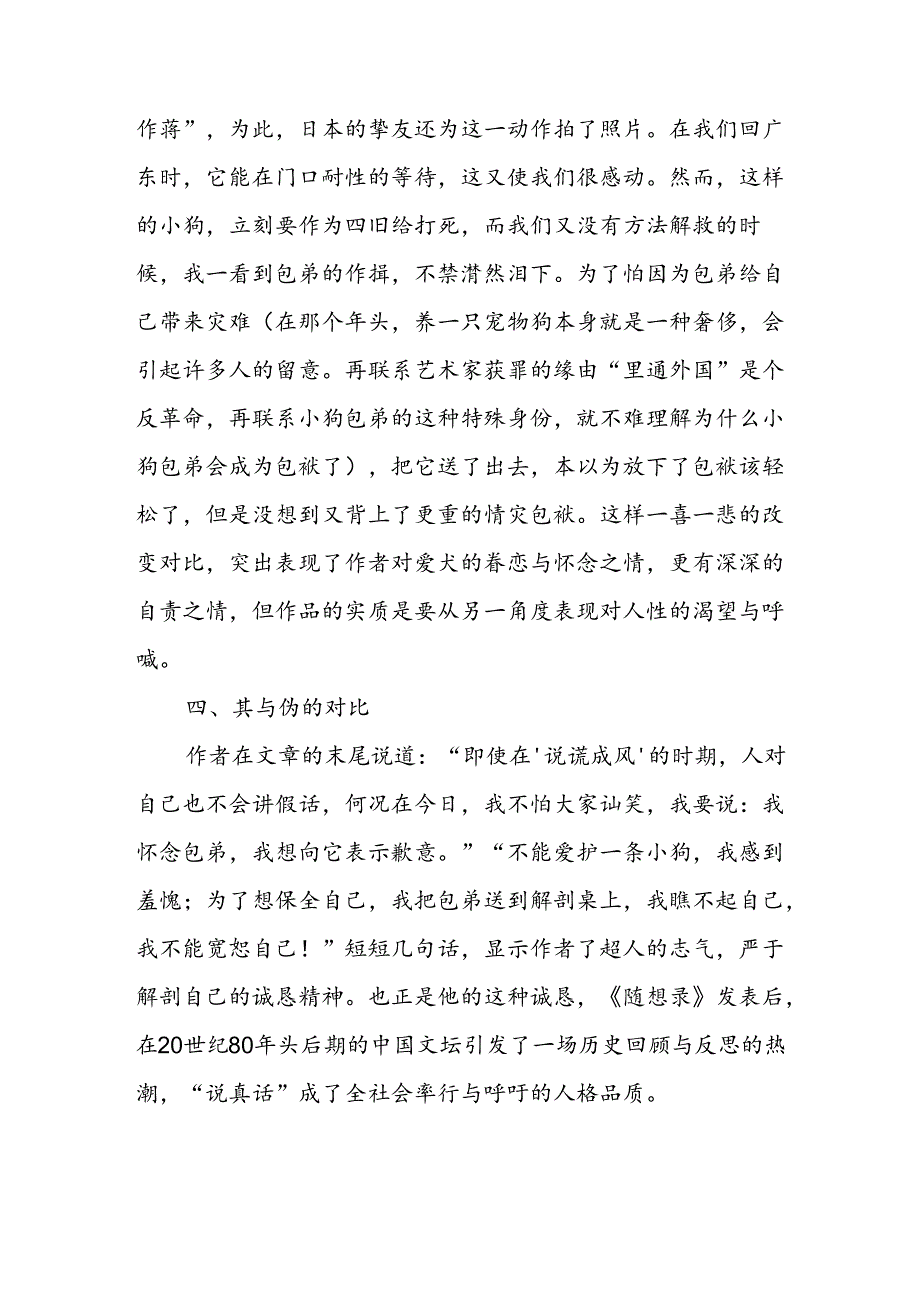 作蒋”，为此，日本的挚友还为这一动作拍了照片。在我们回广
东时，它能在门口耐性的等待，这又使我们很感动。然而，这样
的小狗，立刻要作为四旧给打死，而我们又没有方法解救的时
候，我一看到包弟的作揖，不禁潸然泪下。为了怕因为包弟给自
己带来灾难（在那个年头，养一只宠物狗本身就是一种奢侈，会
引起许多人的留意。再联系艺术家获罪的缘由“里通外国”是个
反革命，再联系小狗包弟的这种特殊身份，就不难理解为什么小
狗包弟会成为包袱了），把它送了出去，本以为放下了包袱该轻
松了，但是没想到又背上了更重的情灾包袱。这样一喜一悲的改
变对比，突出表现了作者对爱犬的眷恋与怀念之情，更有深深的
自责之情，但作品的实质是要从另一角度表现对人性的渴望与呼
喊。
四、其与伪的对比
作者在文章的末尾说道：“即使在'说谎成风'的时期，人对
自己也不会讲假话，何况在今日，我不怕大家讪笑，我要说：我
怀念包弟，我想向它表示歉意。”“不能爱护一条小狗，我感到
羞愧；为了想保全自己，我把包弟送到解剖桌上，我瞧不起自己，
我不能宽恕自己！”短短几句话，显示作者了超人的志气，严于
解剖自己的诚恳精神。也正是他的这种诚恳，《随想录》发表后，
在20世纪80年头后期的中国文坛引发了一场历史回顾与反思的热
潮，“说真话”成了全社会率行与呼吁的人格品质。